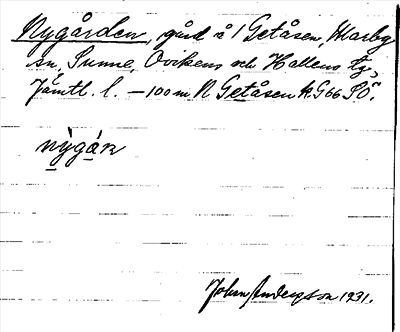 Nygården, gård å 1 Getåsen, Marby
sn, Sunne, Ovikens och Hallens tg,
Jämtl. l. – 100 m N Getåsen k. G 66 SÖ.
nỳgáṛn
John Anderzon 1931.